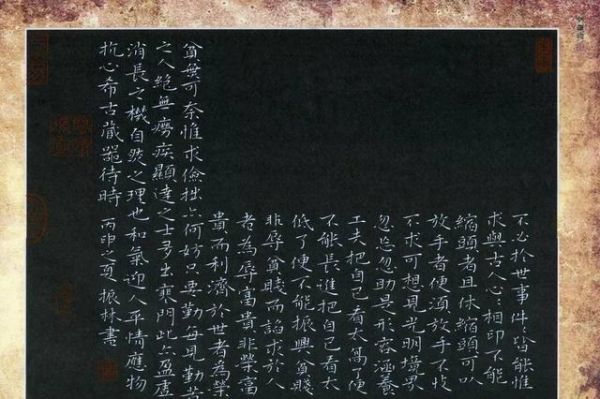 不必於世事件々皆能惟
求與古人心々相印不能
縮頭者且休縮頭可以
放手者便須放手不忮
不求可想見光明境界
忽忘忽助是形容涵養
工夫把自己看太高了便
不能長進把自己看太
低了便不能振興貧賤
非辱貧賤而諂求於人
者為辱富貴非榮富
貴而利濟於世者為榮
貧無可奈惟求儉拙亦何妨只要勤每見勤苦
之人絕無癆疾顯達之士多出寒門此亦盈虛
消長之機自然之理也和氣迎人平情應物
抗心希古藏器待時 丙申之夏 振林書